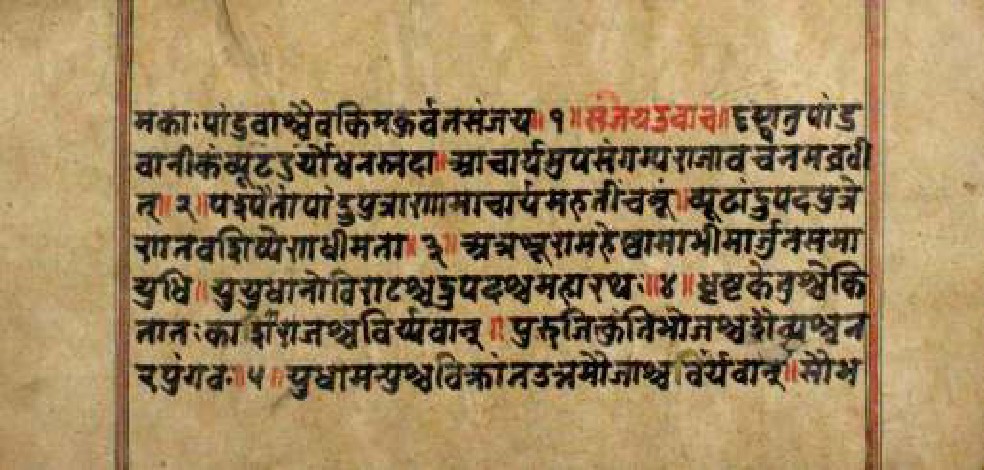 मकाःपांडवाश्चैवकिमकुर्वतसंजय॥१॥संजयउवाच॥दृष्ट्वातुपांड
वानीकंव्यूढंदुर्योधनस्तदा॥आचार्यमुपसंगम्यराजावचनमब्रवी
त्॥२॥पश्यैतांपांडुपुत्राणामाचार्यमहतींचमूं॥व्यूढांद्रुपदपुत्रे
णतवशिष्येणधीमता॥३॥अत्रशूरामहेष्वासाभीमार्जुनसमा
युधि॥युयुधानोविराटश्चद्रुपदश्चमहारथः॥४॥धृष्टकेतुश्चेकि
तानःकाशीराजश्चविर्य्यवान्॥पुरुजित्कुंतिभोजश्चशैव्यश्चन
रपुंगवः॥५॥युधामन्युश्चविक्रांतउत्तमौजाश्चविर्यवान्॥सौभ